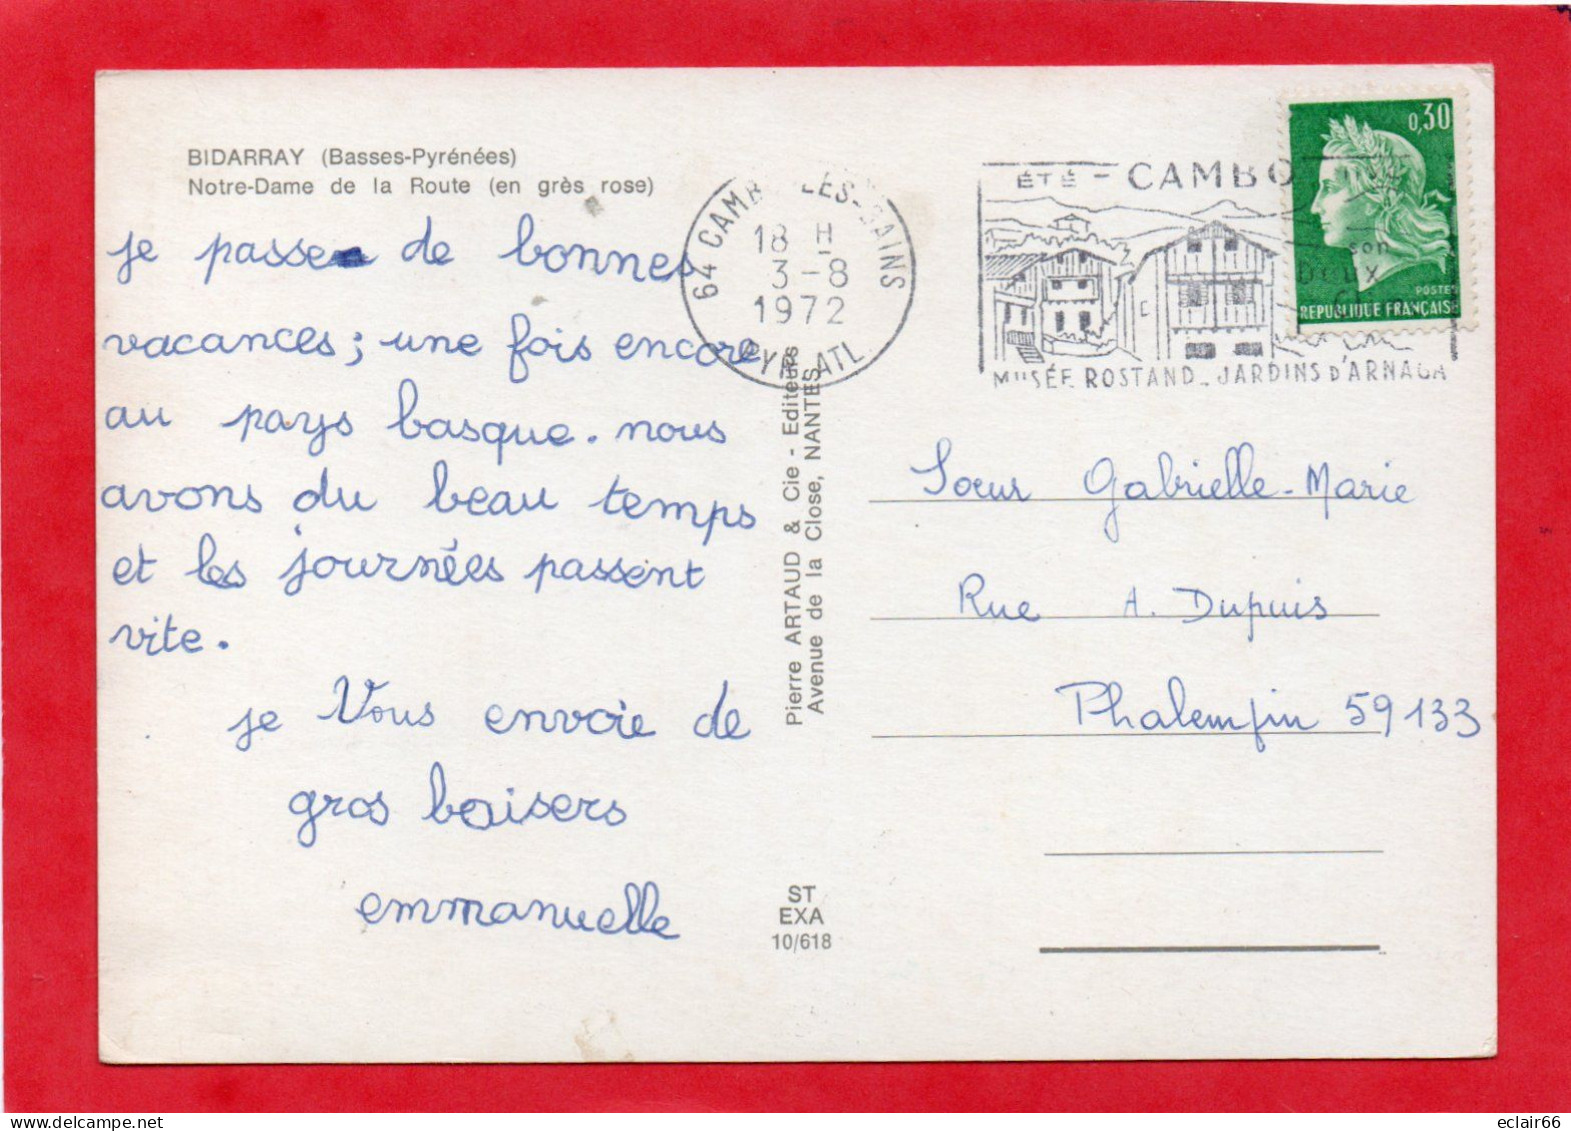 BIDARRAY (Basses-Pyrénées)
Notre-Dame de la Route (en grès rose)
je passe de bonnes
vacances; une fois encore
au pays basque. nous
avons du beau temps
et les journées passent
vite.
je Vous envoie de
gros baisers
emmanuelle
64 CAMB LES-BAINS
18 H
3-8
1972
PYR. ATL.
Pierre ARTAUD & Cie - Editeurs
Avenue de la Close, NANTES
ST
EXA
10/618
ÉTÉ - CAMBO
son
MUSÉE ROSTAND_JARDINS D'ARNAGA
0,30
POSTES
REPUBLIQUE FRANÇAISE
Sœur Gabrielle-Marie
Rue A. Dupuis
Phalempin 59133
eclair66